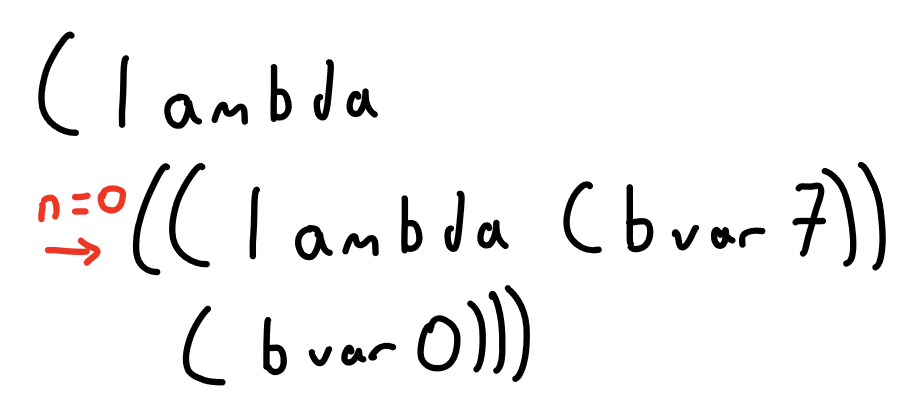 (lambda
n=0 → ((lambda (bvar 7))
(bvar 0)))